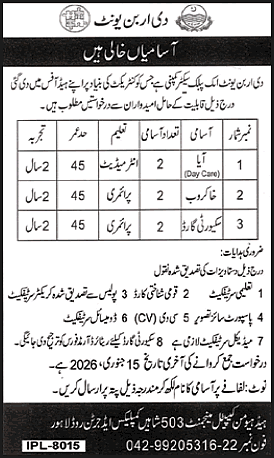 دی اربن یونٹ
آسامیاں خالی ہیں
دی اربن یونٹ ایک پبلک سیکٹر کمپنی ہے جس کو کنٹریکٹ کی بنیاد پر اپنے ہیڈ آفس میں دی گئی
درج ذیل قابلیت کے حامل امیدواران سے درخواستیں مطلوب ہیں۔
نمبر شمار آسامی تعداد آسامی تعلیم حد عمر تجربہ
1 آیا (Day Care) 2 انٹرمیڈیٹ 45 2 سال
2 خاکروب 2 پرائمری 45 2 سال
3 سکیورٹی گارڈ 2 پرائمری 45 2 سال
ضروری ہدایات:
درج ذیل دستاویزات کی تصدیق شدہ نقول
1 تعلیمی سرٹیفکیٹ 2 قومی شناختی کارڈ 3 پولیس سے تصدیق شدہ کریکٹر سرٹیفکیٹ
4 پاسپورٹ سائز تصویر 5 سی وی (CV) 6 ڈومیسائل سرٹیفکیٹ
7 میڈیکل سرٹیفکیٹ لازمی ہے 8 سکیورٹی گارڈ کیلئے ریٹائرڈ آرمڈ فورس کو ترجیح دی جائیگی۔
درخواست جمع کروانے کی آخری تاریخ 15 جنوری، 2026 ہے۔
نوٹ: لفافے پر آسامی کا نام لکھ کر مندرجہ ذیل پتہ پر ارسال کریں۔
ہیڈ ہیومن کیپیٹل مینجمنٹ 503 شاہین کمپلیکس ایجرٹن روڈ لاہور
فون نمبر 22-042-99205316
IPL-8015